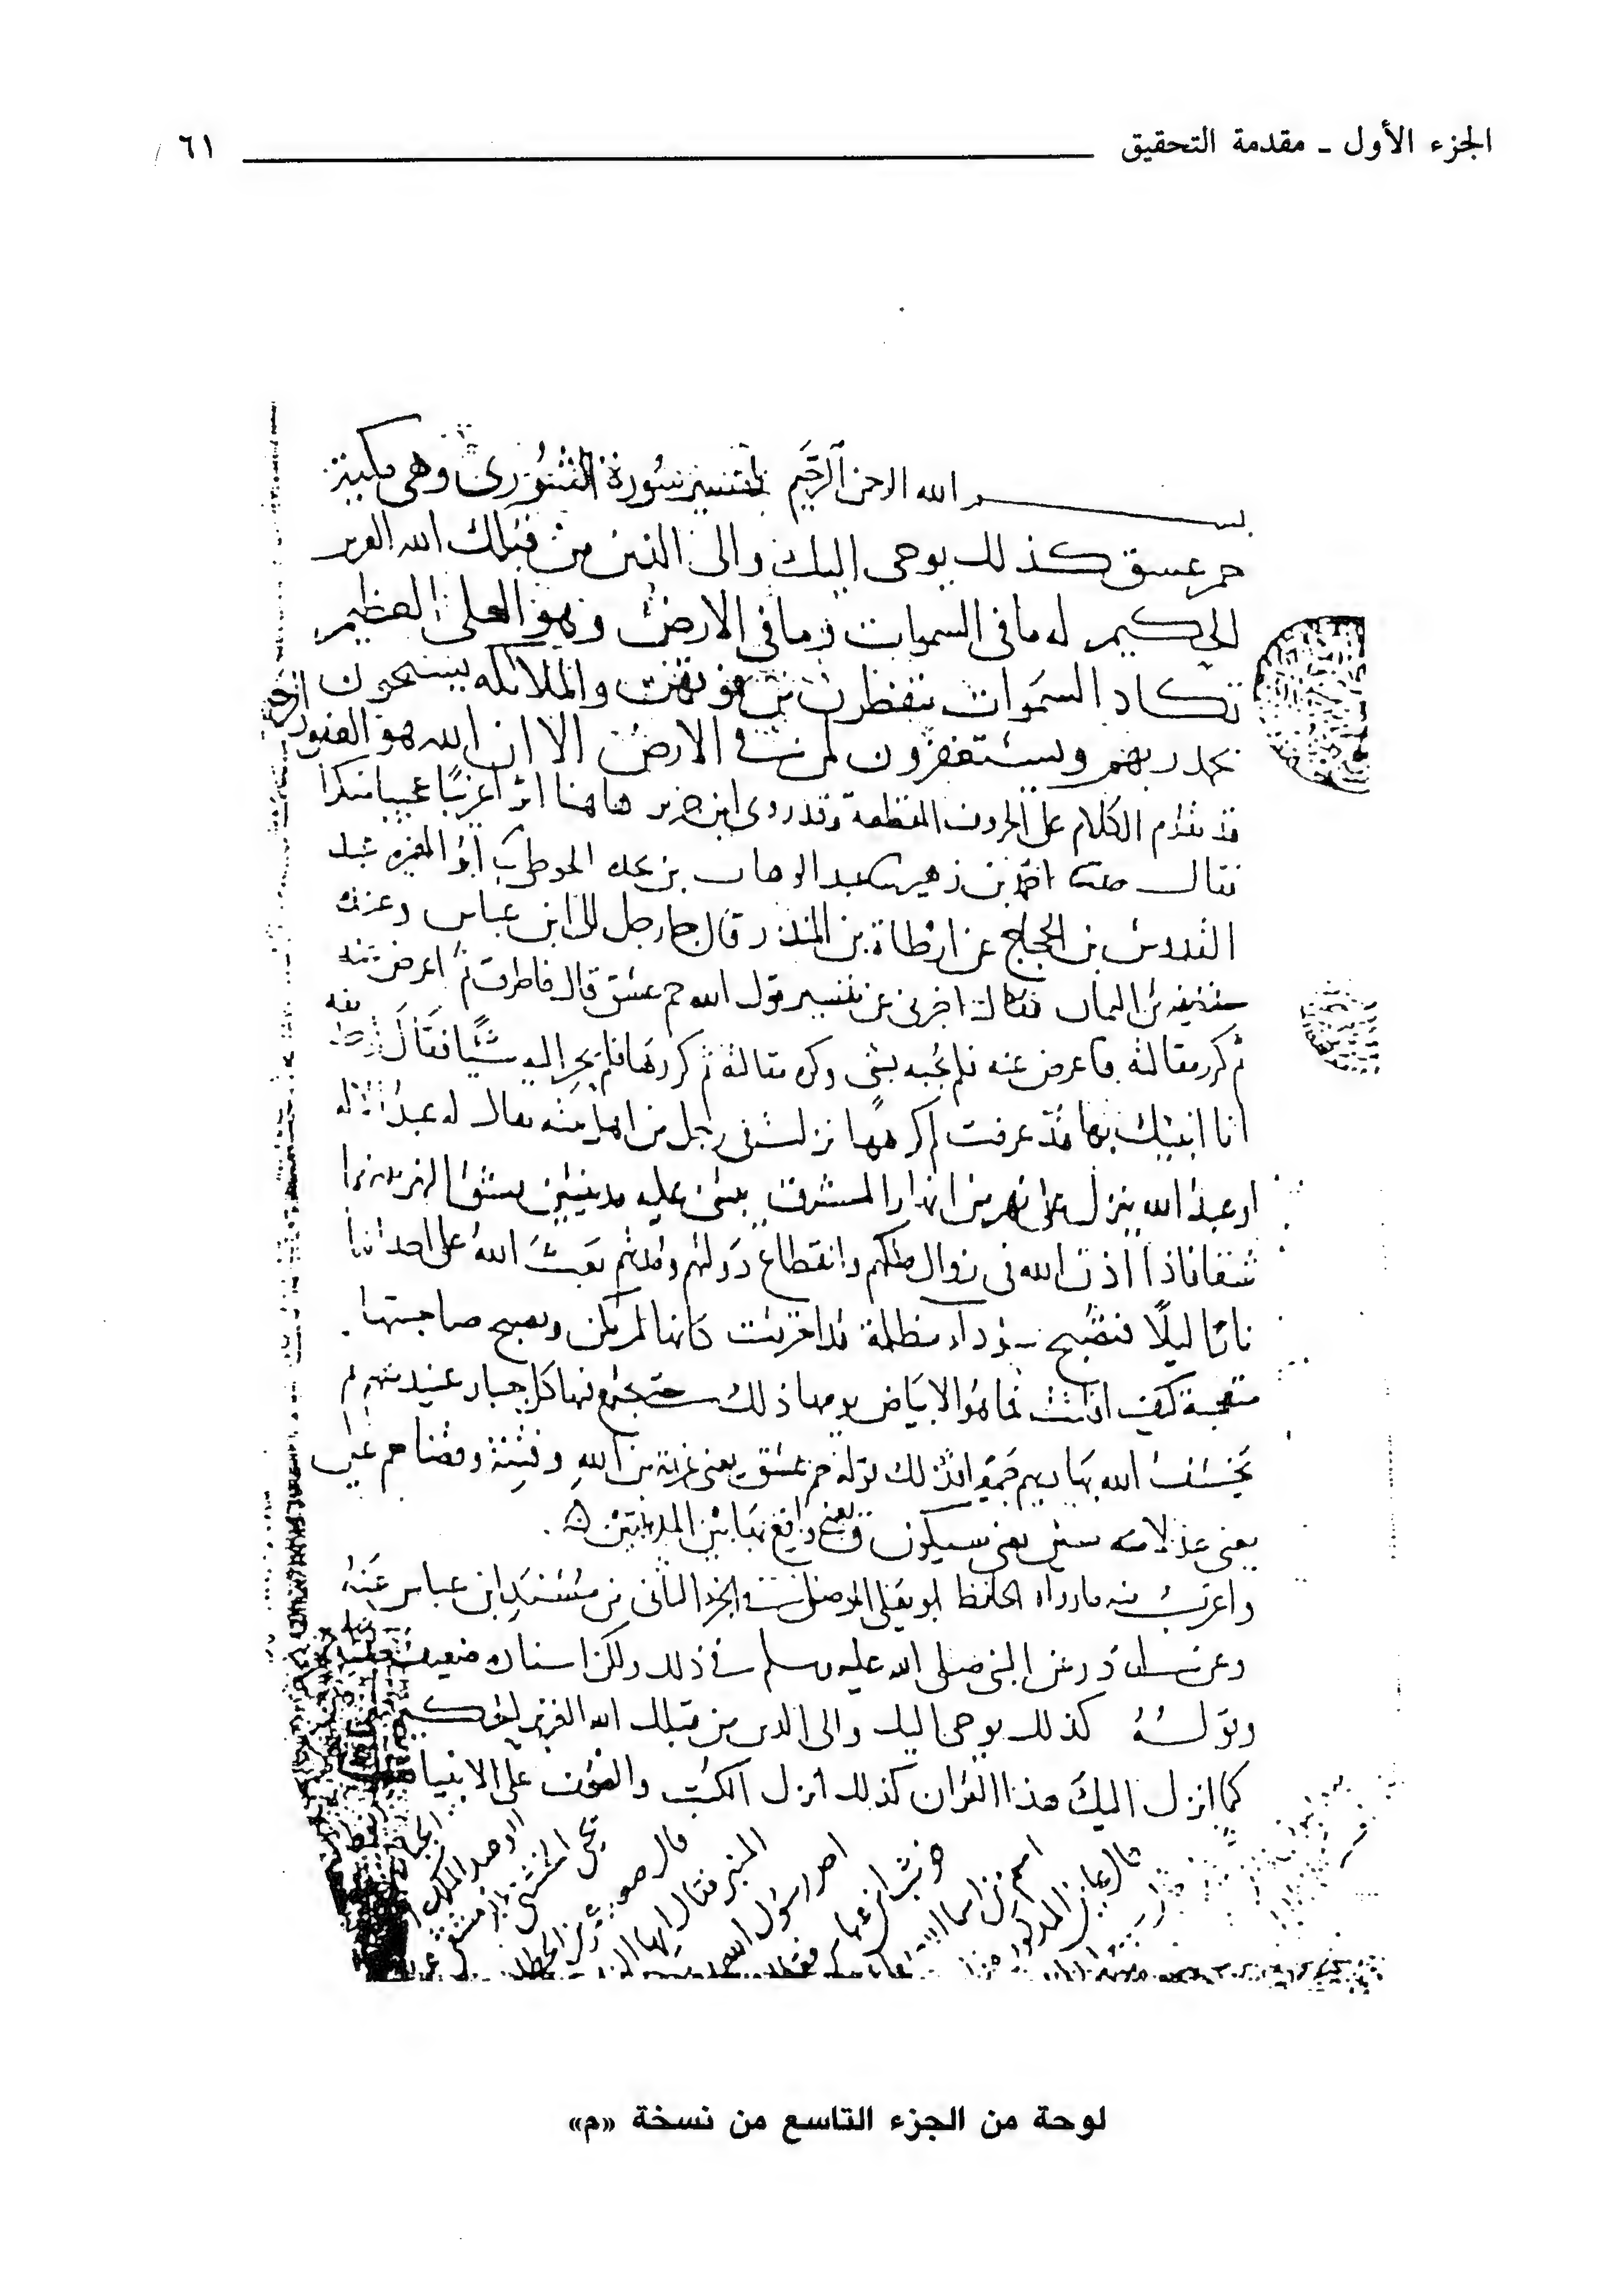 الجزء الأول ـ مقدمة التحقيق ٦١
بسم الله الرحمن الرحيم تفسير سورة الشورى وهي مكية
حم عسق كذلك يوحى اليك والى الذين من قبلك الله العزيز
الحكيم له ما في السموات وما في الارض وهو العلى العظيم
تكاد السموات يتفطرن من فوقهن والملائكه يسبحون
بحمد ربهم ويستغفرون لمن في الارض الا ان الله هو الغفور الرحيم
قد تقدم الكلام على الحروف المقطعة وقد روى ابن جرير هاهنا اثرا غريبًا عجيبا منكرا
فقال احمد بن زهير عبد الوهاب بن نجده الحوطى ابو المغيره عبد
القدوس بن الحجاج عن ارطاة بن المنذر قال جا رجل الى ابن عباس وعنده
حذيفه بن اليمان فقال له اخبرنى عن تفسير قول الله حم عسق قال فاطرق ثم اعرض عنه
ثم كرر مقالته فاعرض عنه فلم يجبه بشى وكره مقالته ثم كررها فلم يحر اليه شيًا فقال حذيفه
انا انبيك بها قد عرفت لم كرهها نزلت فى رجل من اهل بيته يقال له عبد الاله
او عبد الله ينزل على نهر من انهار المشرق يبنى عليه مدينتين يشق النهر بينهما
شقا فاذا اذن الله فى زوال ملكهم وانقطاع دولتهم ومدتهم بعث الله على احداهما
نارًا ليلًا فتصبح سوداء مظلمة قد احترقت كانها لم تكن وتصبح صاحبتها
متعجبة كيف افلتت فما هو الا بياض يومها ذلك حتى يجتمع فيها كل جبار عنيد منهم ثم
يخسف الله بها وبهم جميعا فذلك قوله حم عسق يعنى عزيمة من الله وفتنة وقضا حم عين
يعنى عدلا منه سين يعنى سيكون ق يعنى واقع بهاتين المدينتين
واغرب منه ما رواه الحافظ ابو يعلى الموصلى فى الجزء الثانى من مسند ابن عباس
وعن ابى ذر عن النبى صلى الله عليه وسلم فى ذلك ولكن اسناده ضعيف
وقوله كذلك يوحى اليك والى الذين من قبلك الله العزيز الحكيم
كما انزل اليك هذا القران كذلك انزل الكتب والصحف على الانبيا
لوحة من الجزء التاسع من نسخة «م»